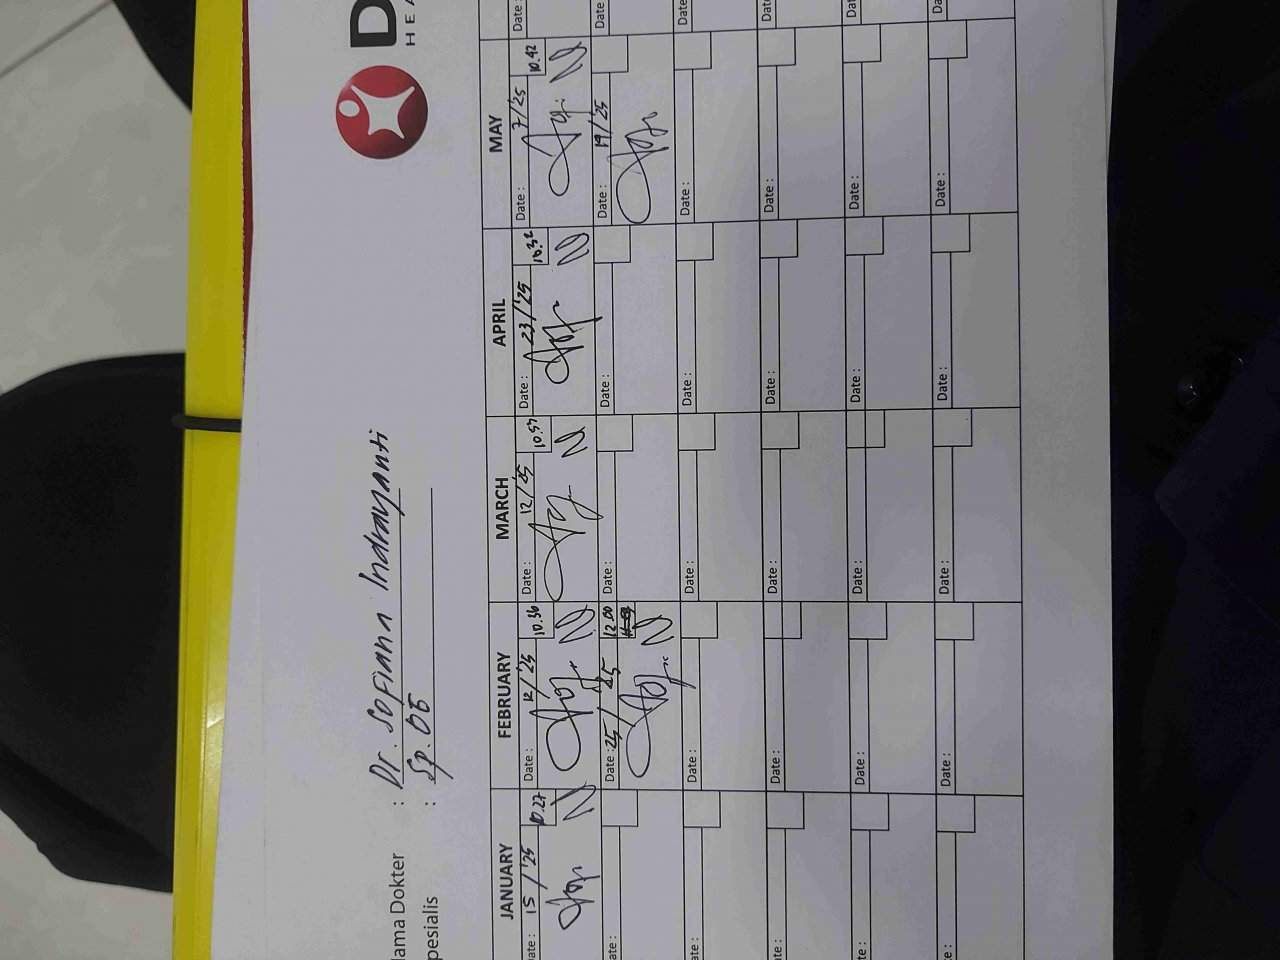 D
HEA
Nama Dokter : Dr. Sofiana Indrayanti
Spesialis : Sp. OG
JANUARY FEBRUARY MARCH APRIL MAY
Date : 15 / '25 10.27 Date : 12/'25 10.36 Date : 12/'25 10.57 Date : 23/'25 10.32 Date : 7/'25 10.42 Date :
Date : Date : 25 / 25 12.00 Date : Date : Date : 19/'25 Date :
Date : Date : Date : Date : Date : Date :
Date : Date : Date : Date : Date : Date :
Date : Date : Date : Date : Date : Date :
Date : Date : Date : Date : Date : Da